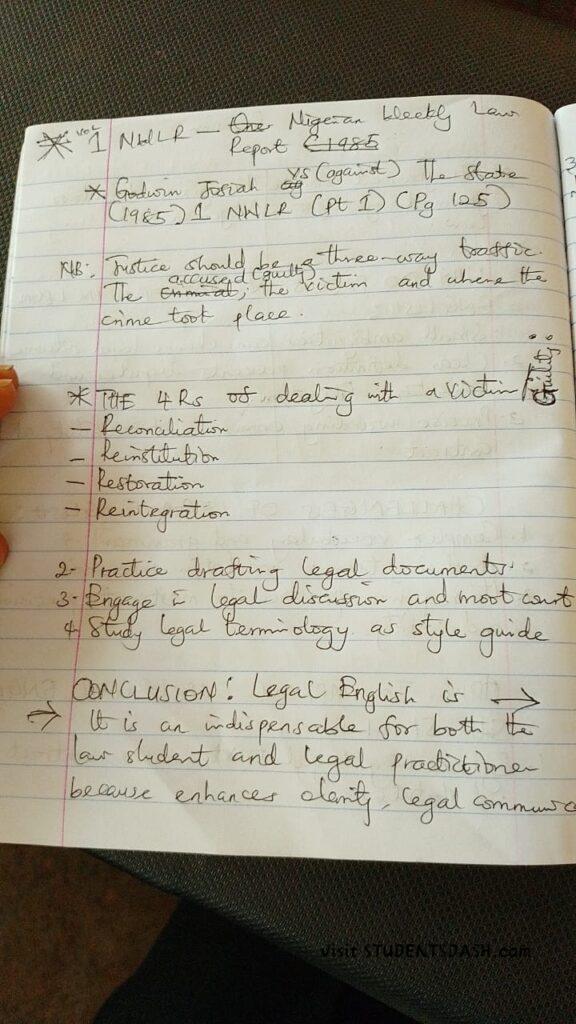 * Vol 1 NWLR — One Nigerian Weekly Law
Report (1985
* Godwin Josiah vs (against) The state
(1985) 1 NWLR (Pt 1) (Pg 125)
NB: Justice should be a three-way traffic.
The accused (guilt), the victim and where the
crime took place.
* THE 4 Rs of dealing with a victim / Guilty:
- Reconciliation
- Reinstitution
- Restoration
- Reintegration
2- Practice drafting legal documents.
3- Engage in legal discussion and moot court
4. Study legal terminology as style guide
CONCLUSION: Legal English is →
→ It is an indispensable for both the
law student and legal practictioner
because enhances clarity, legal communica
visit STUDENTSDASH.com